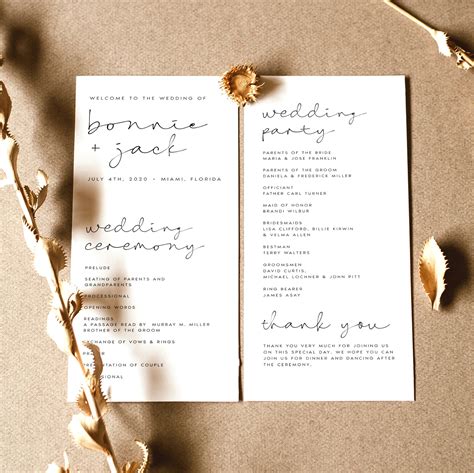 WELCOME TO THE WEDDING OF
bonnie
+ jack
JULY 4TH, 2020 - MIAMI, FLORIDA
wedding
ceremony
PRELUDE
SEATING OF PARENTS AND
GRANDPARENTS
PROCESSIONAL
OPENING WORDS
READINGS
A PASSAGE READ BY MURRAY M. MILLER
BROTHER OF THE GROOM
EXCHANGE OF VOWS & RINGS
OF COUPLE
wedding
party
PARENTS OF THE BRIDE
MARIA & JOSE FRANKLIN
PARENTS OF THE GROOM
DANIELA & FREDERICK MILLER
OFFICIANT
FATHER CARL TURNER
MAID OF HONOR
BRANDI WILBUR
BRIDESMAIDS
LISA CLIFFORD, BILLIE KIRWIN
& VELMA ALLEN
BESTMAN
TERRY WALTERS
GROOMSMEN
DAVID CURTIS,
MICHAEL LOCHNER & JOHN PITT
RING BEARER
JAMES ASAY
thank you
THANK YOU VERY MUCH FOR JOINING US
ON THIS SPECIAL DAY. WE HOPE YOU CAN
JOIN US FOR DINNER AND DANCING AFTER
THE CEREMONY.